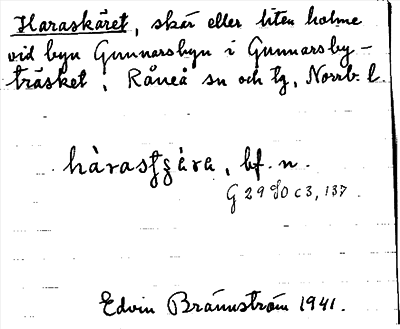 Haraskäret, skär eller liten holme
vid byn Gunnarsbyn i Gunnarsby-
träsket, Råneå sn och tg, Norrb. l.
bf. n.
G 29 80 c 3, 137.
Edvin Brännström 1941.